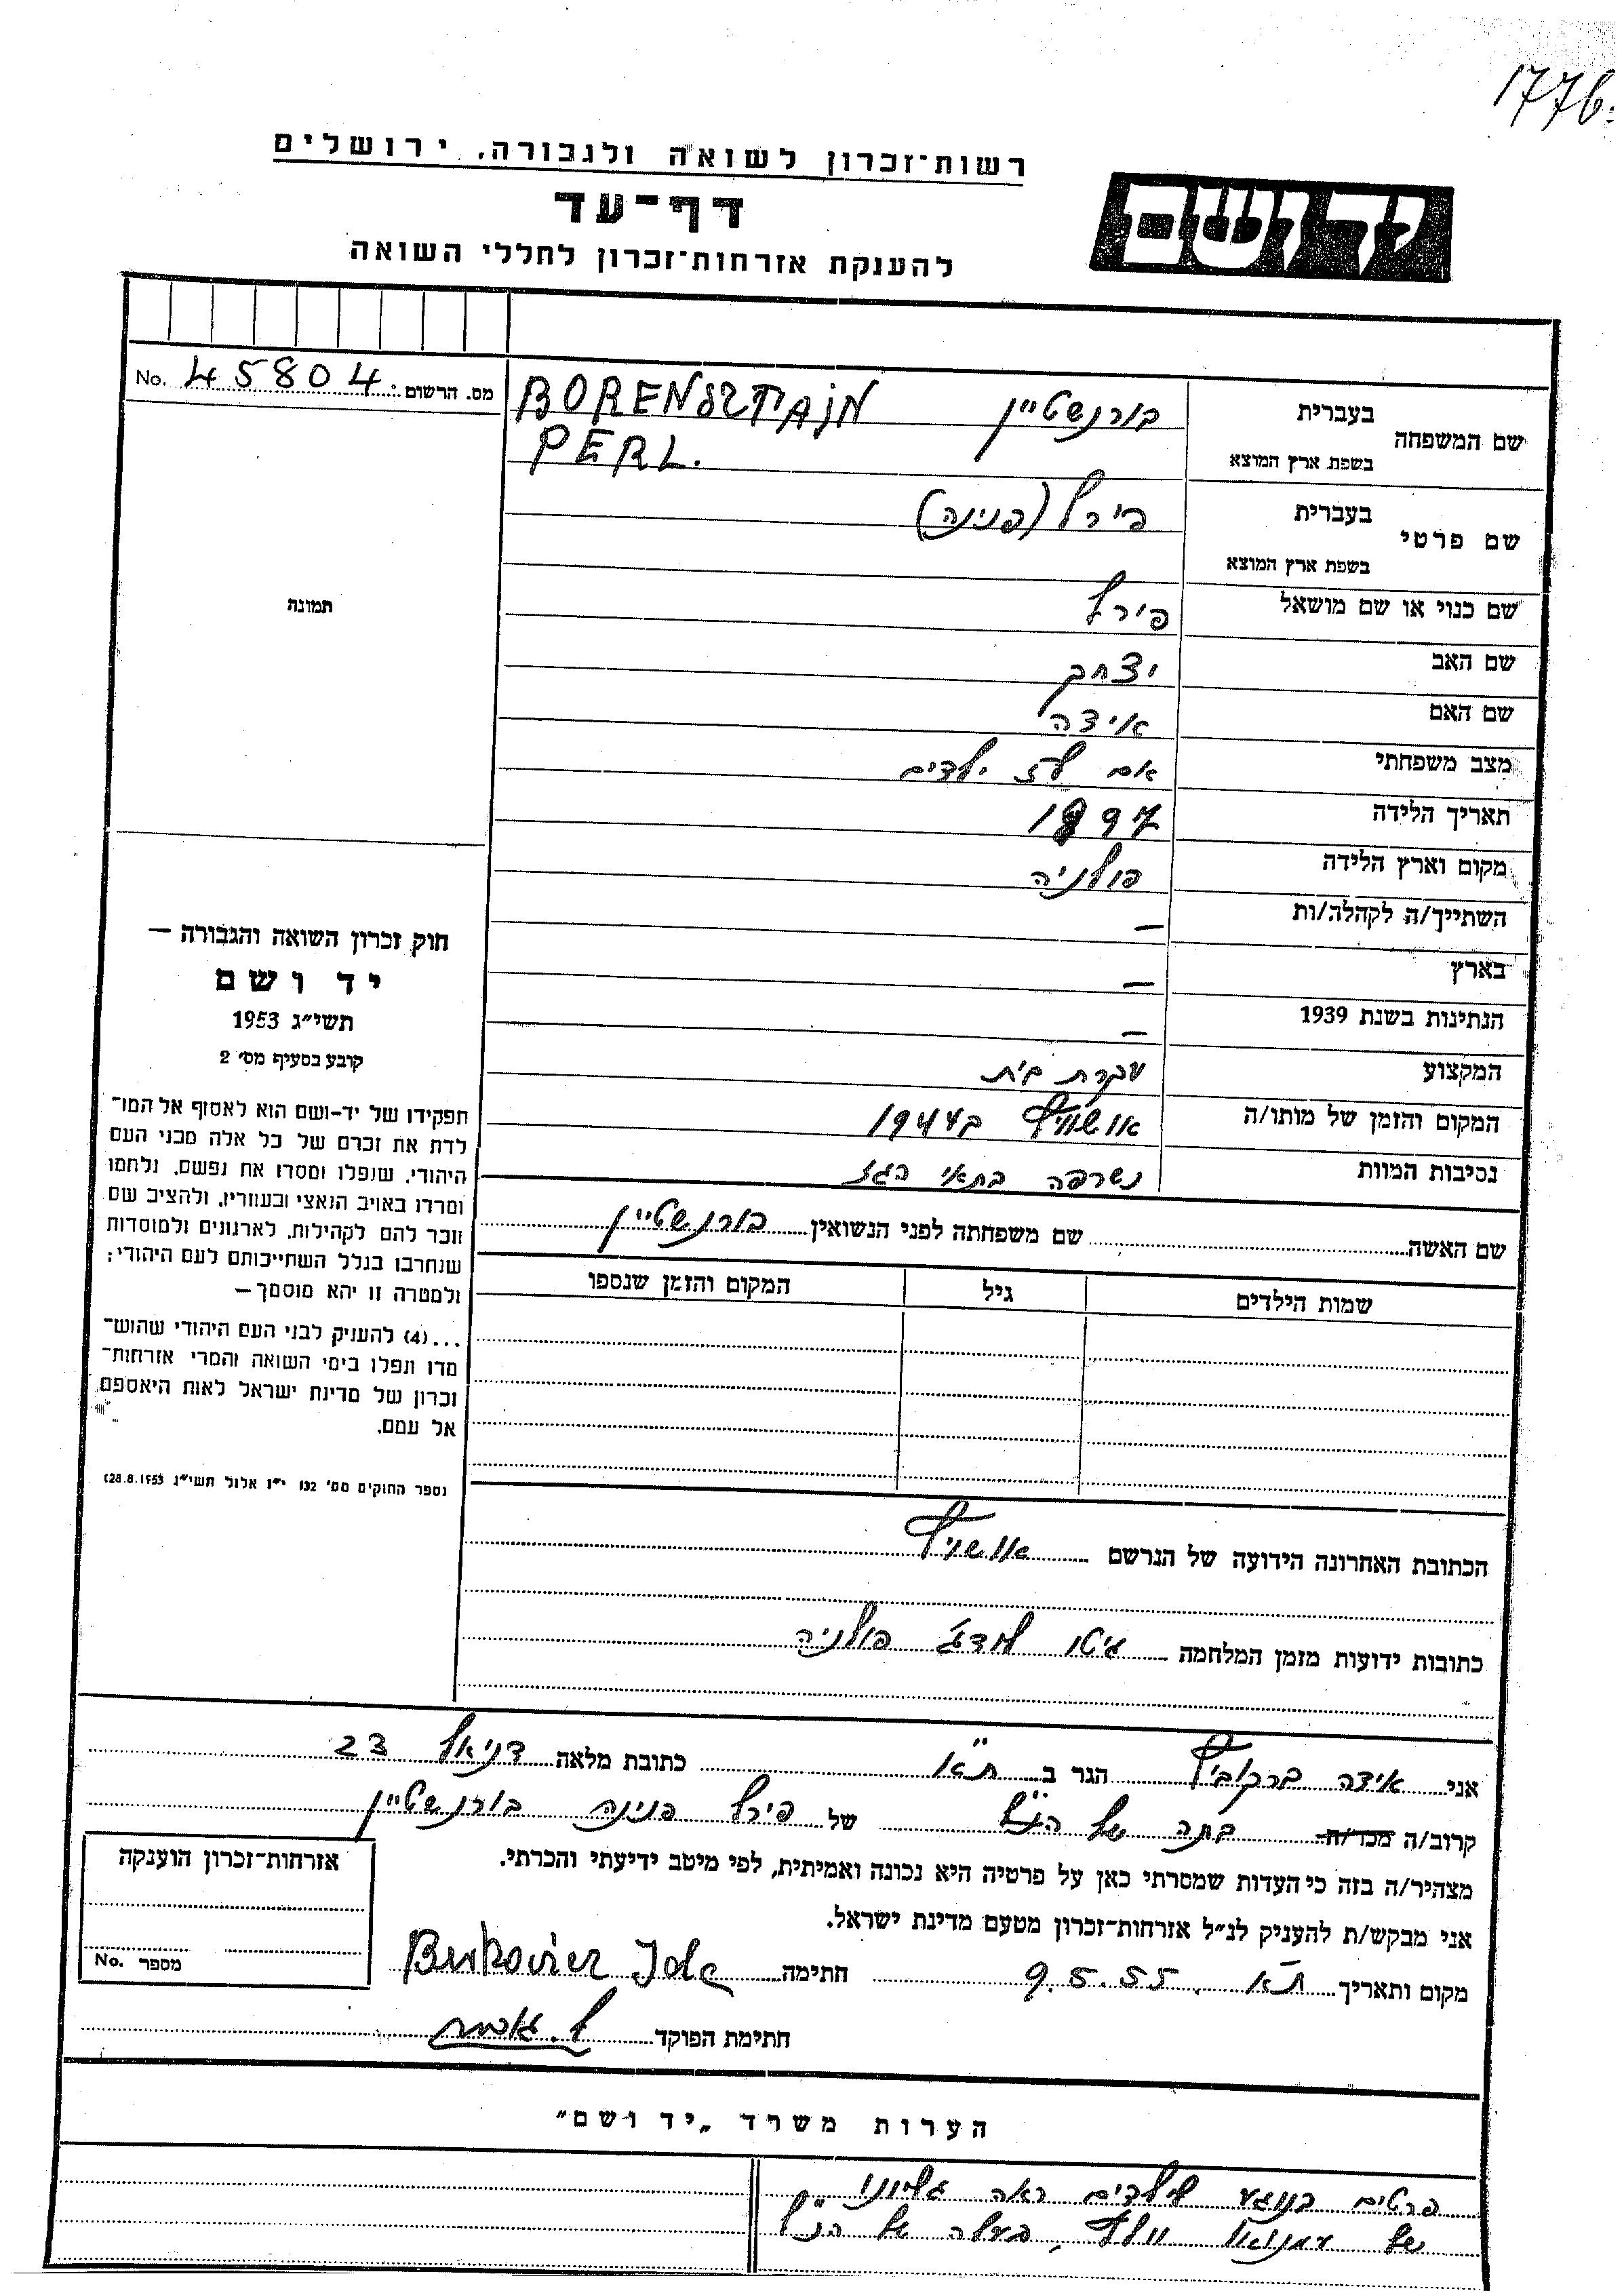 177b
רשות־זכרון לשואה ולגבורה, ירושלים
יד ושם
דף־עד
להענקת אזרחות־זכרון לחללי השואה
מס. הרשום 45804 No.
שם המשפחה בעברית בורנשטיין BORENSZTAJN
בשפת ארץ המוצא PERL.
שם פרטי בעברית פירל (פנינה)
בשפת ארץ המוצא
שם כנוי או שם מושאל פירל
שם האב יצחק
שם האם אידה
מצב משפחתי אם ל3 ילדים
תאריך הלידה 1897
מקום וארץ הלידה פולניה
השתייך/ה לקהלה/ות —
בארץ —
הנתינות בשנת 1939 —
המקצוע עקרת בית
המקום והזמן של מותו/ה אושויץ ב1944
נסיבות המוות נשרפה בתאי הגז
שם האשה שם משפחתה לפני הנשואין בורנשטיין
שמות הילדים גיל המקום והזמן שנספו
הכתובת האחרונה הידועה של הנרשם אושויץ
כתובות ידועות מזמן המלחמה גיטו לודג' פולניה
תמונה
חוק זכרון השואה והגבורה —
יד ושם
תשי״ג 1953
קובע בסעיף מס׳ 2
תפקידו של יד-ושם הוא לאסוף אל המו־
לדת את זכרם של כל אלה מבני העם
היהודי, שנפלו ומסרו את נפשם, נלחמו
ומרדו באויב הנאצי ובעוזריו, ולהציב שם
וזכר להם לקהילות, לארגונים ולמוסדות
שנחרבו בגלל השתייכותם לעם היהודי;
ולמטרה זו יהא מוסמך —
...(4) להעניק לבני העם היהודי שהוש־
מדו ונפלו בימי השואה והמרי אזרחות־
זכרון של מדינת ישראל לאות היאספם
אל עמם.
(ספר החוקים מס׳ 132 י״ז אלול תשי״ג 28.8.1953)
אני אידה ברקוביץ הגר ב ת"א כתובת מלאה דניאל 23
קרוב/ה מכר/ה בתה של הנ"ל של פירל פנינה בורנשטיין
מצהיר/ה בזה כי העדות שמסרתי כאן על פרטיה היא נכונה ואמיתית, לפי מיטב ידיעתי והכרתי.
אני מבקש/ת להעניק לנ״ל אזרחות־זכרון מטעם מדינת ישראל.
מקום ותאריך ת"א 9.5.55 חתימה Berkovier Ida
חתימת הפוקד
אזרחות־זכרון הוענקה
מספר No.
הערות משרד „יד ושם״
פרטים בנוגע לילדים ראה גליונו
של עמנואל וולף, בעלה של הנ"ל